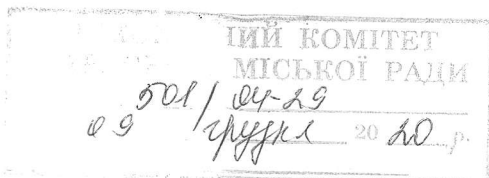 КОМІТЕТ
МІСЬКОЇ РАДИ
501/04-29
09 грудня 2020 р.